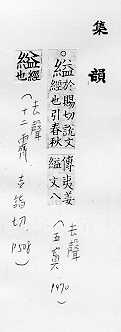 集韻
○縊於賜切說文經也引春秋傳夷姜縊文八
去聲
(五寘 P470.)
縊經也
(去聲
十二霽. 壹詣切. P508)